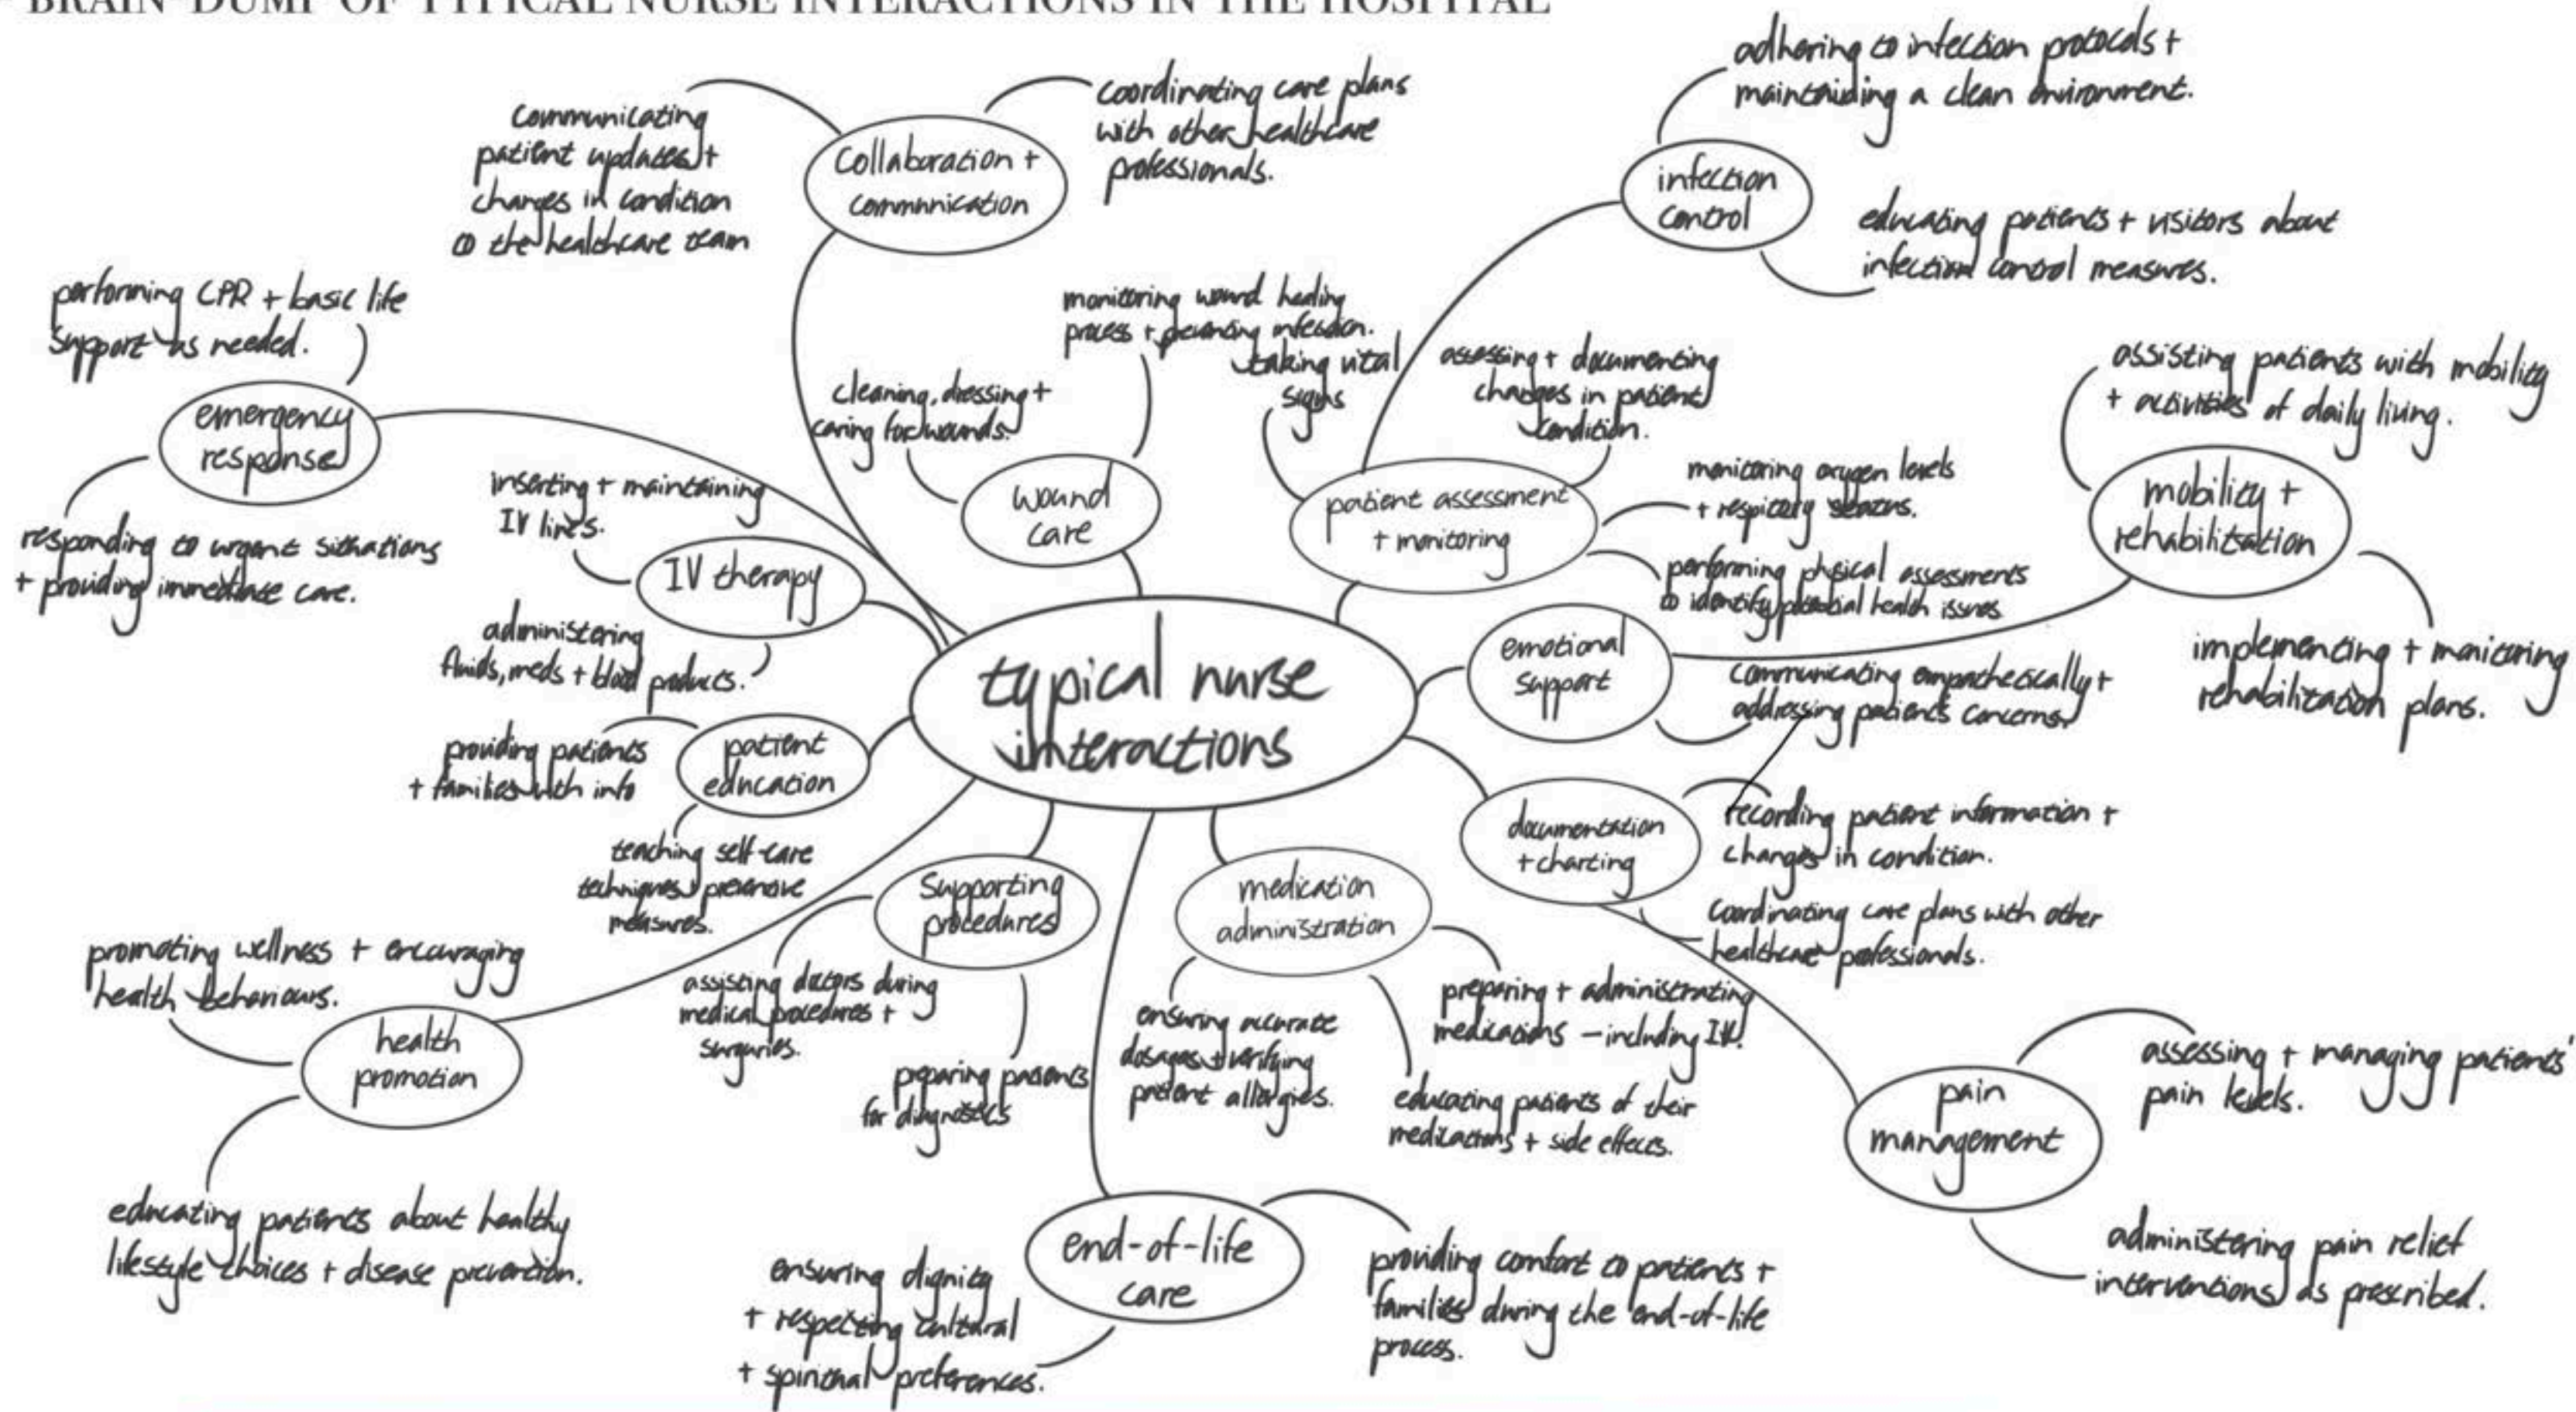 BRAIN-DUMP OF TYPICAL NURSE INTERACTIONS IN THE HOSPITAL
typical nurse
interactions
Collaboration +
communication
communicating
patient updates +
changes in condition
to the healthcare team
coordinating care plans
with other healthcare
professionals.
infection
control
adhering to infection protocols +
maintaining a clean environment.
educating patients + visitors about
infection control measures.
emergency
response
performing CPR + basic life
support as needed.
responding to urgent situations
+ providing immediate care.
wound
care
cleaning, dressing +
caring for wounds.
monitoring wound healing
process + preventing infection.
patient assessment
+ monitoring
taking vital
signs
assessing + documenting
changes in patient
condition.
monitoring oxygen levels
+ respitory status.
performing physical assessments
to identify potential health issues
mobility +
rehabilitation
assisting patients with mobility
+ activities of daily living.
implementing + monitoring
rehabilitation plans.
IV therapy
inserting + maintaining
IV lines.
administering
fluids, meds + blood products.
emotional
support
communicating empathetically +
addressing patients concerns
patient
education
providing patients
+ families with info
teaching self-care
techniques + preventive
measures.
documentation
+ charting
recording patient information +
changes in condition.
coordinating care plans with other
healthcare professionals.
supporting
procedures
assisting doctors during
medical procedures +
surguries.
preparing patients
for diagnostics
medication
administration
ensuring accurate
dosages + verifying
patient allergies.
preparing + administrating
medications – including IV.
educating patients of their
medications + side effects.
health
promotion
promoting wellness + encouraging
health behaviours.
educating patients about healthy
lifestyle choices + disease prevention.
pain
management
assessing + managing patients'
pain levels.
administering pain relief
interventions as prescribed.
end-of-life
care
ensuring dignity
+ respecting cultural
+ spiritual preferences.
providing comfort to patients +
families during the end-of-life
process.